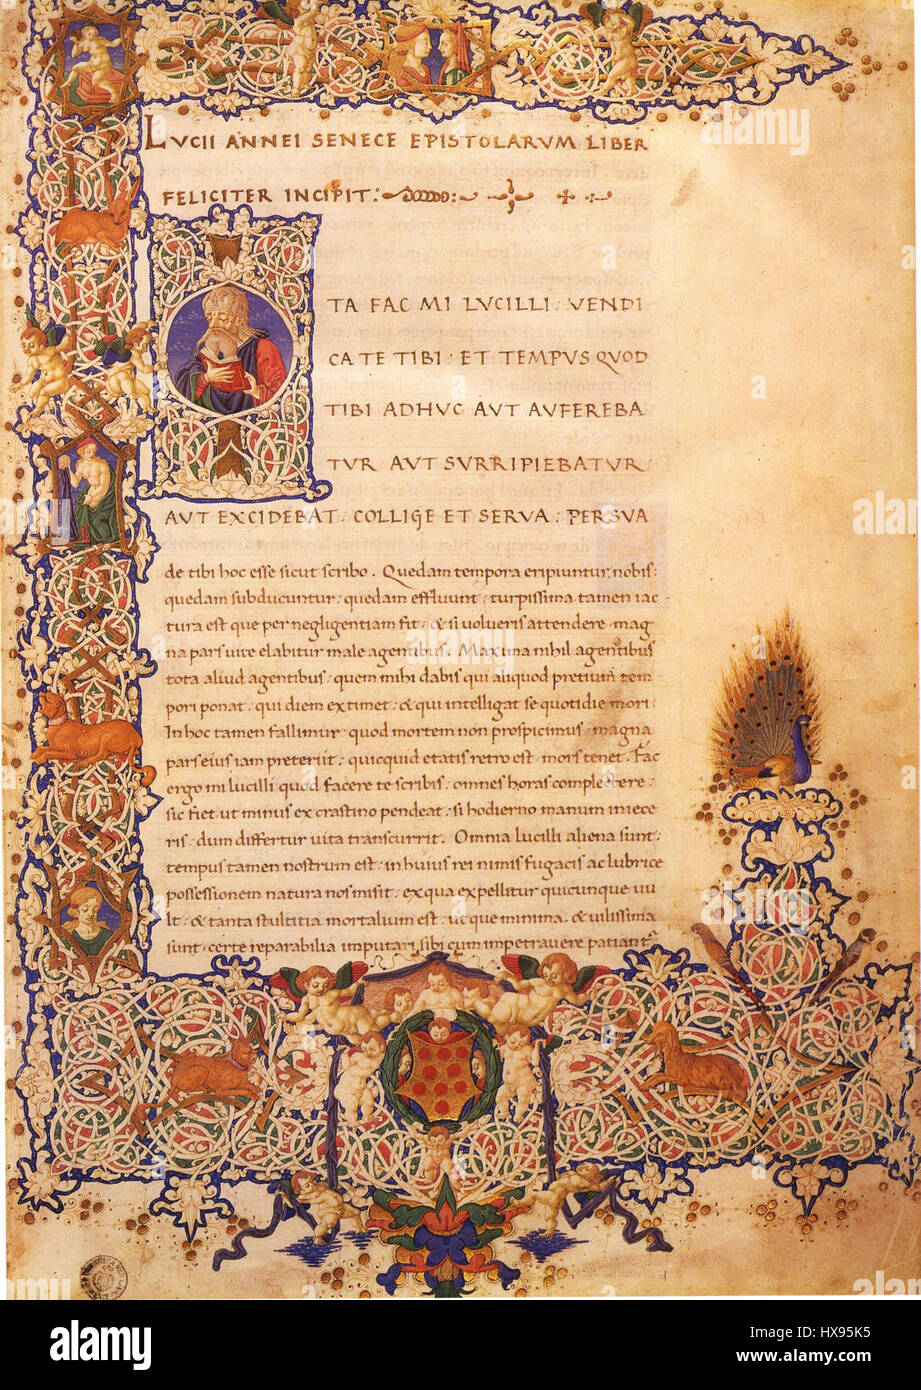 LUCII ANNEI SENECE EPISTOLARUM LIBER
FELICITER INCIPIT:
TA FAC MI LUCILLI: VENDI
CA TE TIBI: ET TEMPUS QUOD
TIBI ADHUC AUT AUFEREBA
TUR AUT SURRIPIEBATUR
AUT EXCIDEBAT. COLLIGE ET SERVA: PERSUA
de tibi hoc esse sicut scribo. Quedam tempora eripiuntur nobis:
quedam subducuntur: quedam effluunt: turpissima tamen iac
tura est que per negligentiam fit: & si volueris attendere mag
na pars vite elabitur male agentibus. Maxima nihil agentibus
tota aliud agentibus: quem mihi dabis qui aliquod pretium tem
pori ponat: qui diem extimet: & qui intelligat se quotidie mori:
In hoc tamen fallimur: quod mortem non prospicimus: magna
pars eius iam preteriit: quicquid etatis retro est: mors tenet. Fac
ergo mi lucilli quod facere te scribis: omnes horas complectere:
sic fiet ut minus ex crastino pendeat: si hodierno manum iniece
ris: dum differtur vita transcurrit. Omnia lucilli aliena sunt:
tempus tamen nostrum est: in huius rei nimis fugacis ac lubrice
possessionem natura nos misit: ex qua expellitur quicunque vu
lt: & tanta stultitia mortalium est: ut que minima & vilissima
sunt: certe reparabilia imputari sibi cum impetravere patiantr
a alamy stock photo
HX95K5
www.alamy.com